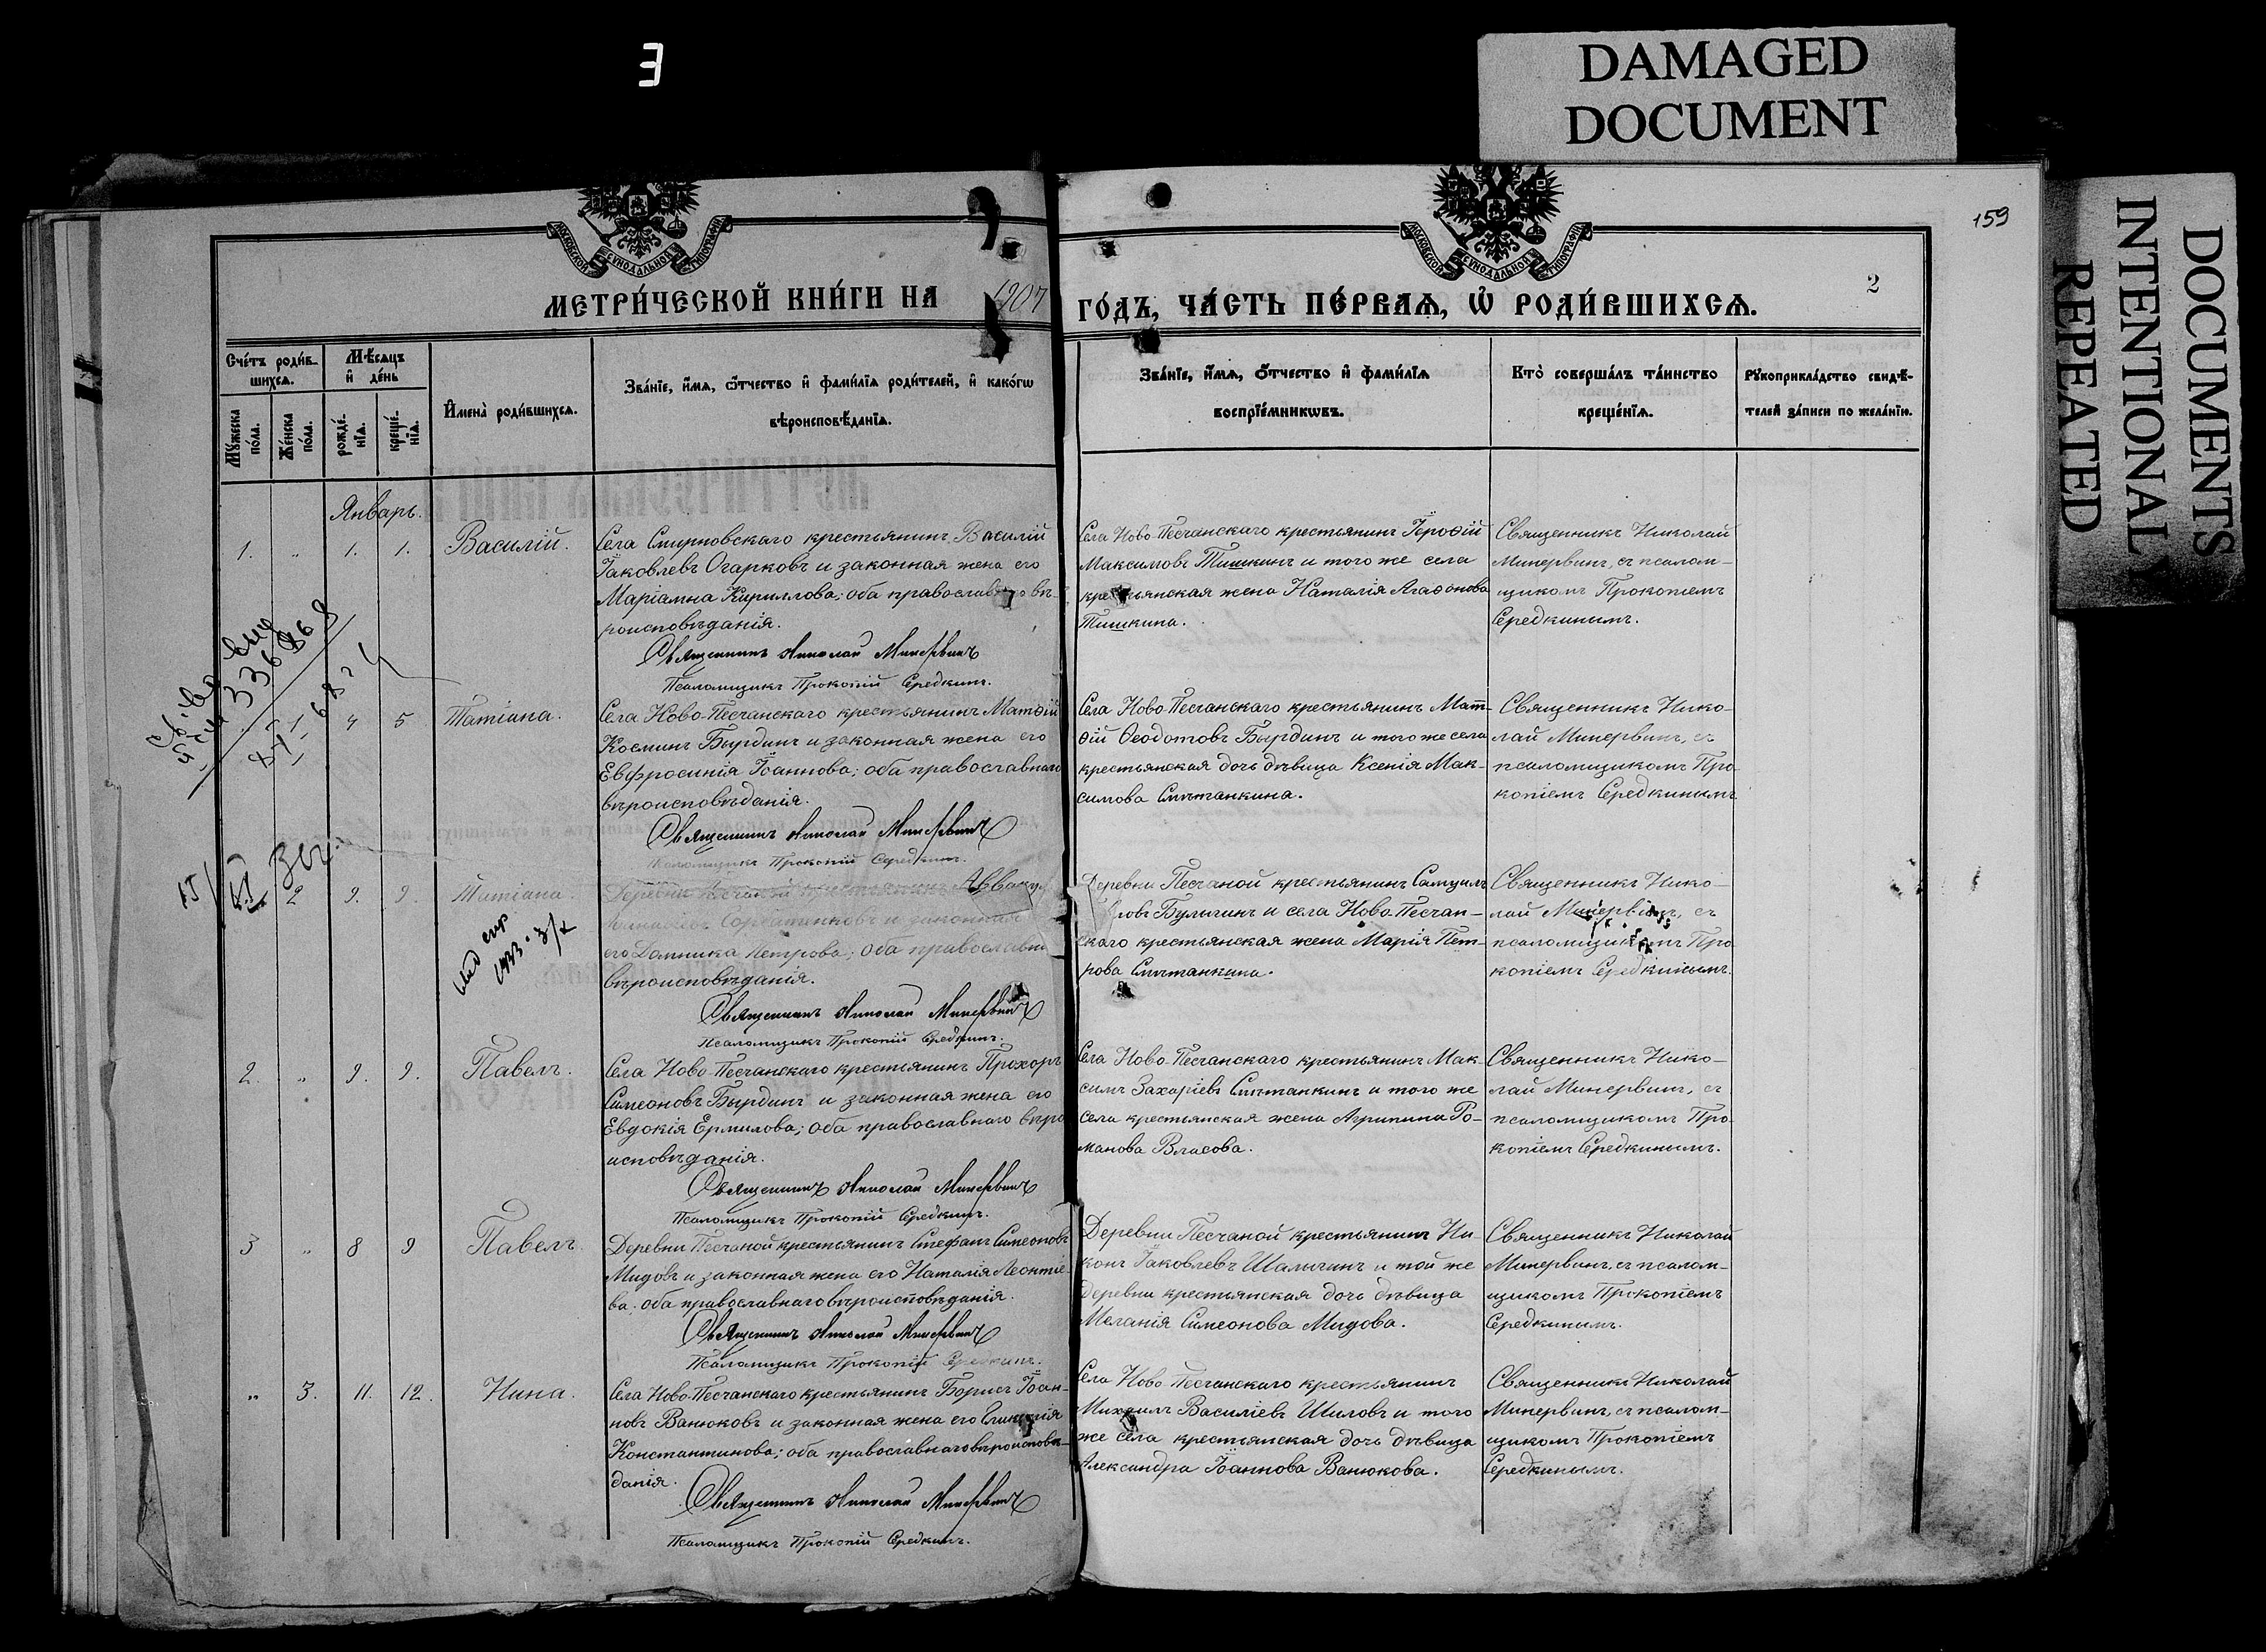 Э
DAMAGED
DOCUMENT
DOCUMENTS
INTENTIONALY
REPEATED
159
2
МОСКОВСКОЙ СѴНОДАЛЬНОЙ ТИПОГРАФІИ
МОСКОВСКОЙ СѴНОДАЛЬНОЙ ТИПОГРАФІИ
МЕТРИ́ЧЕСКОЙ КНИ́ГИ НА 1907 ГО́ДЪ, ЧА́СТЬ ПЕ́РВАѦ, Ѡ҆ РОДИ́ВШИХСѦ.
Сче́тъ роди́в-
шихсѧ.
Мѣ́сѧцъ
и҆ де́нь
Мꙋ́жеска
по́ла.
Же́нска
по́ла.
рожде́-
нїѧ.
креще́-
нїѧ.
И҆мена̀ роди́вшихсѧ.
Зва́нїе, и҆́мѧ, ѻ҆́тчество и҆ фами́лїѧ роди́телей, и҆ како́гѡ
вѣроисповѣ́данїѧ.
Зва́нїе, и҆́мѧ, ѻ҆́тчество и҆ фами́лїѧ
воспрїе́мникѡвъ.
Кто̀ соверша́лъ та́инство
креще́нїѧ.
Рꙋкоприкла́дство свидѣ́-
телей за́писи по жела́нїю.
Январь.
1. " 1. 1. Василій.
Села Смирновскаго крестьянинъ Василій
Іаковлевъ Огарковъ и законная жена его
Маріамна Кириллова; оба православнаго вѣ-
роисповѣданія.
Священникъ Николай Минервинъ
Псаломщикъ Прокопій Середкинъ.
Села Ново-Песчанскаго крестьянинъ Іероѳій
Максимовъ Тишкинъ и того же села
крестьянская жена Наталія Агаѳонова
Тишкина.
Священникъ Николай
Минервинъ, съ псалом-
щикомъ Прокопіемъ
Середкинымъ.
" 1 4 5 Татіана.
Села Ново-Песчанскаго крестьянинъ Матѳій
Косминъ Бырдинъ и законная жена его
Евфросинія Іоаннова; оба православнаго
вѣроисповѣданія.
Священникъ Николай Минервинъ
Псаломщикъ Прокопій Середкинъ.
Села Ново-Песчанскаго крестьянинъ Мат-
ѳій Ѳеодотовъ Бырдинъ и того же села
крестьянская дочь дѣвица Ксенія Мак-
симова Смѣтанкина.
Священникъ Нико-
лай Минервинъ, съ
псаломщикомъ Про-
копіемъ Середкинымъ
2 9. 9. Татіана.
Деревни Песчаной крестьянинъ
и законная
его Домника Петрова; оба православн
вѣроисповѣданія.
Священникъ Николай Минервинъ
Псаломщикъ Прокопій Середкинъ.
Деревни Песчаной крестьянинъ Самуилъ
ловъ Булычинъ и села Ново-Песчан-
скаго крестьянская жена Марія Пет-
рова Смѣтанкина.
Священникъ Нико-
лай Минервинъ, съ
псаломщикомъ Про
копіемъ Середкинымъ.
2. " 9. 9. Павелъ.
Села Ново-Песчанскаго крестьянинъ Прохоръ
Симеоновъ Бырдинъ и законная жена его
Евдокія Ермилова; оба православнаго вѣро
исповѣданія.
Священникъ Николай Минервинъ
Псаломщикъ Прокопій Середкинъ.
Села Ново-Песчанскаго крестьянинъ Мак-
симъ Захаріевъ Смѣтанкинъ и того же
села крестьянская жена Агрипина Ро-
манова Власова.
Священникъ Нико-
лай Минервинъ, съ
псаломщикомъ Про-
копіемъ Середкинымъ.
3 " 8 9 Павелъ.
Деревни Песчаной крестьянинъ Стефанъ Симеоновъ
Мидовъ и законная жена его Наталія Леонтіе-
ва. оба православнаго вѣроисповѣданія.
Священникъ Николай Минервинъ
Псаломщикъ Прокопій Середкинъ.
Деревни Песчаной крестьянинъ Ни-
конъ Іаковлевъ Шалычинъ и той же
деревни крестьянская дочь дѣвица
Меланія Симеонова Мидова.
Священникъ Николай
Минервинъ, съ псалом-
щикомъ Прокопіемъ
Середкинымъ.
" 3. 11. 12. Нина.
Села Ново-Песчанскаго крестьянинъ Борисъ Іоан-
новъ Ванюковъ и законная жена его Гликерія
Константинова; оба православнаго вѣроисповѣ-
данія.
Священникъ Николай Минервинъ
Псаломщикъ Прокопій Середкинъ.
Села Ново-Песчанскаго крестьянинъ
Михаилъ Василіевъ Шиловъ и того
же села крестьянская дочь дѣвица
Александра Іоаннова Ванюкова.
Священникъ Николай
Минервинъ, съ псалом-
щикомъ Прокопіемъ
Середкинымъ.